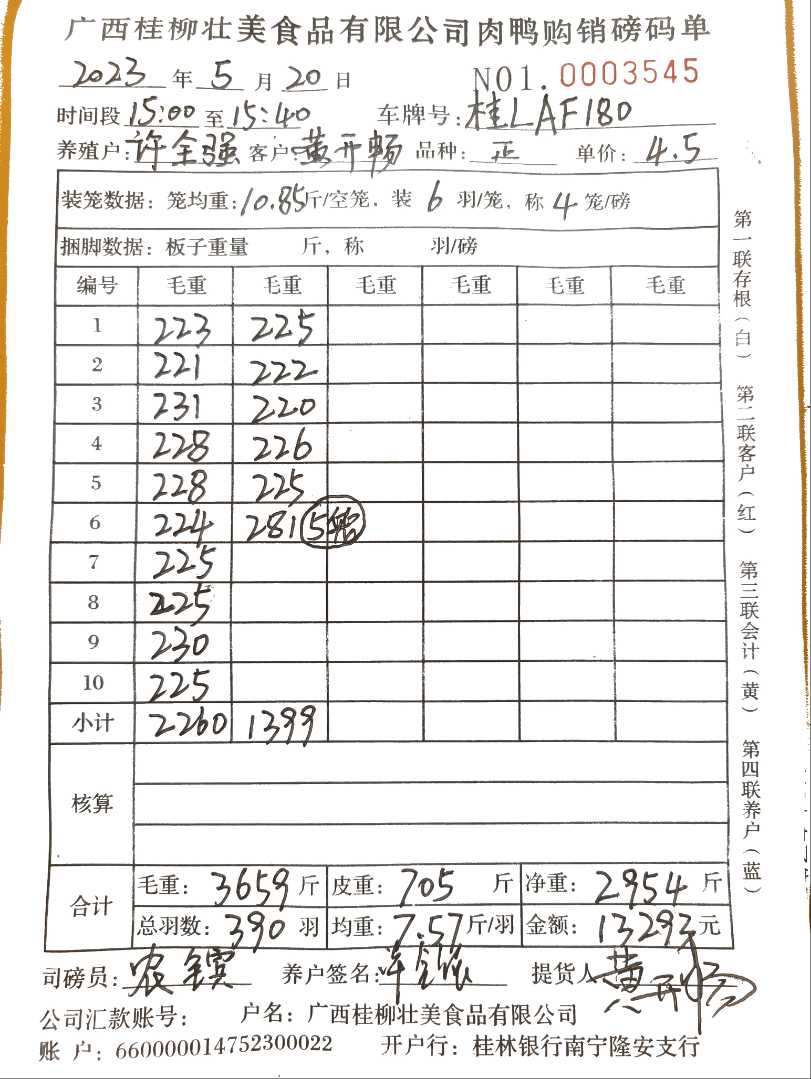 广西桂柳壮美食品有限公司肉鸭购销磅码单
2023 年 5 月 20 日 NO1. 0003545
时间段 15:00 至 15:40 车牌号: 桂LAF180
养殖户: 许全强 客户: 黄开畅 品种: 正 单价: 4.5
装笼数据: 笼均重: 10.85 斤/空笼, 装 6 羽/笼, 称 4 笼/磅
捆脚数据: 板子重量 斤, 称 羽/磅
编号 毛重 毛重 毛重 毛重 毛重 毛重
1 223 225
2 221 222
3 231 220
4 228 226
5 228 225
6 224 281 5笼
7 225
8 225
9 230
10 225
小计 2260 1399
核算
合计 毛重: 3659 斤 皮重: 705 斤 净重: 2954 斤
总羽数: 390 羽 均重: 7.57 斤/羽 金额: 13293 元
司磅员: 农全宾 养户签名: 许全强 提货人 黄开畅
公司汇款账号: 户名: 广西桂柳壮美食品有限公司
账 户: 660000014752300022 开户行: 桂林银行南宁隆安支行
第一联存根(白) 第二联客户(红) 第三联会计(黄) 第四联养户(蓝)